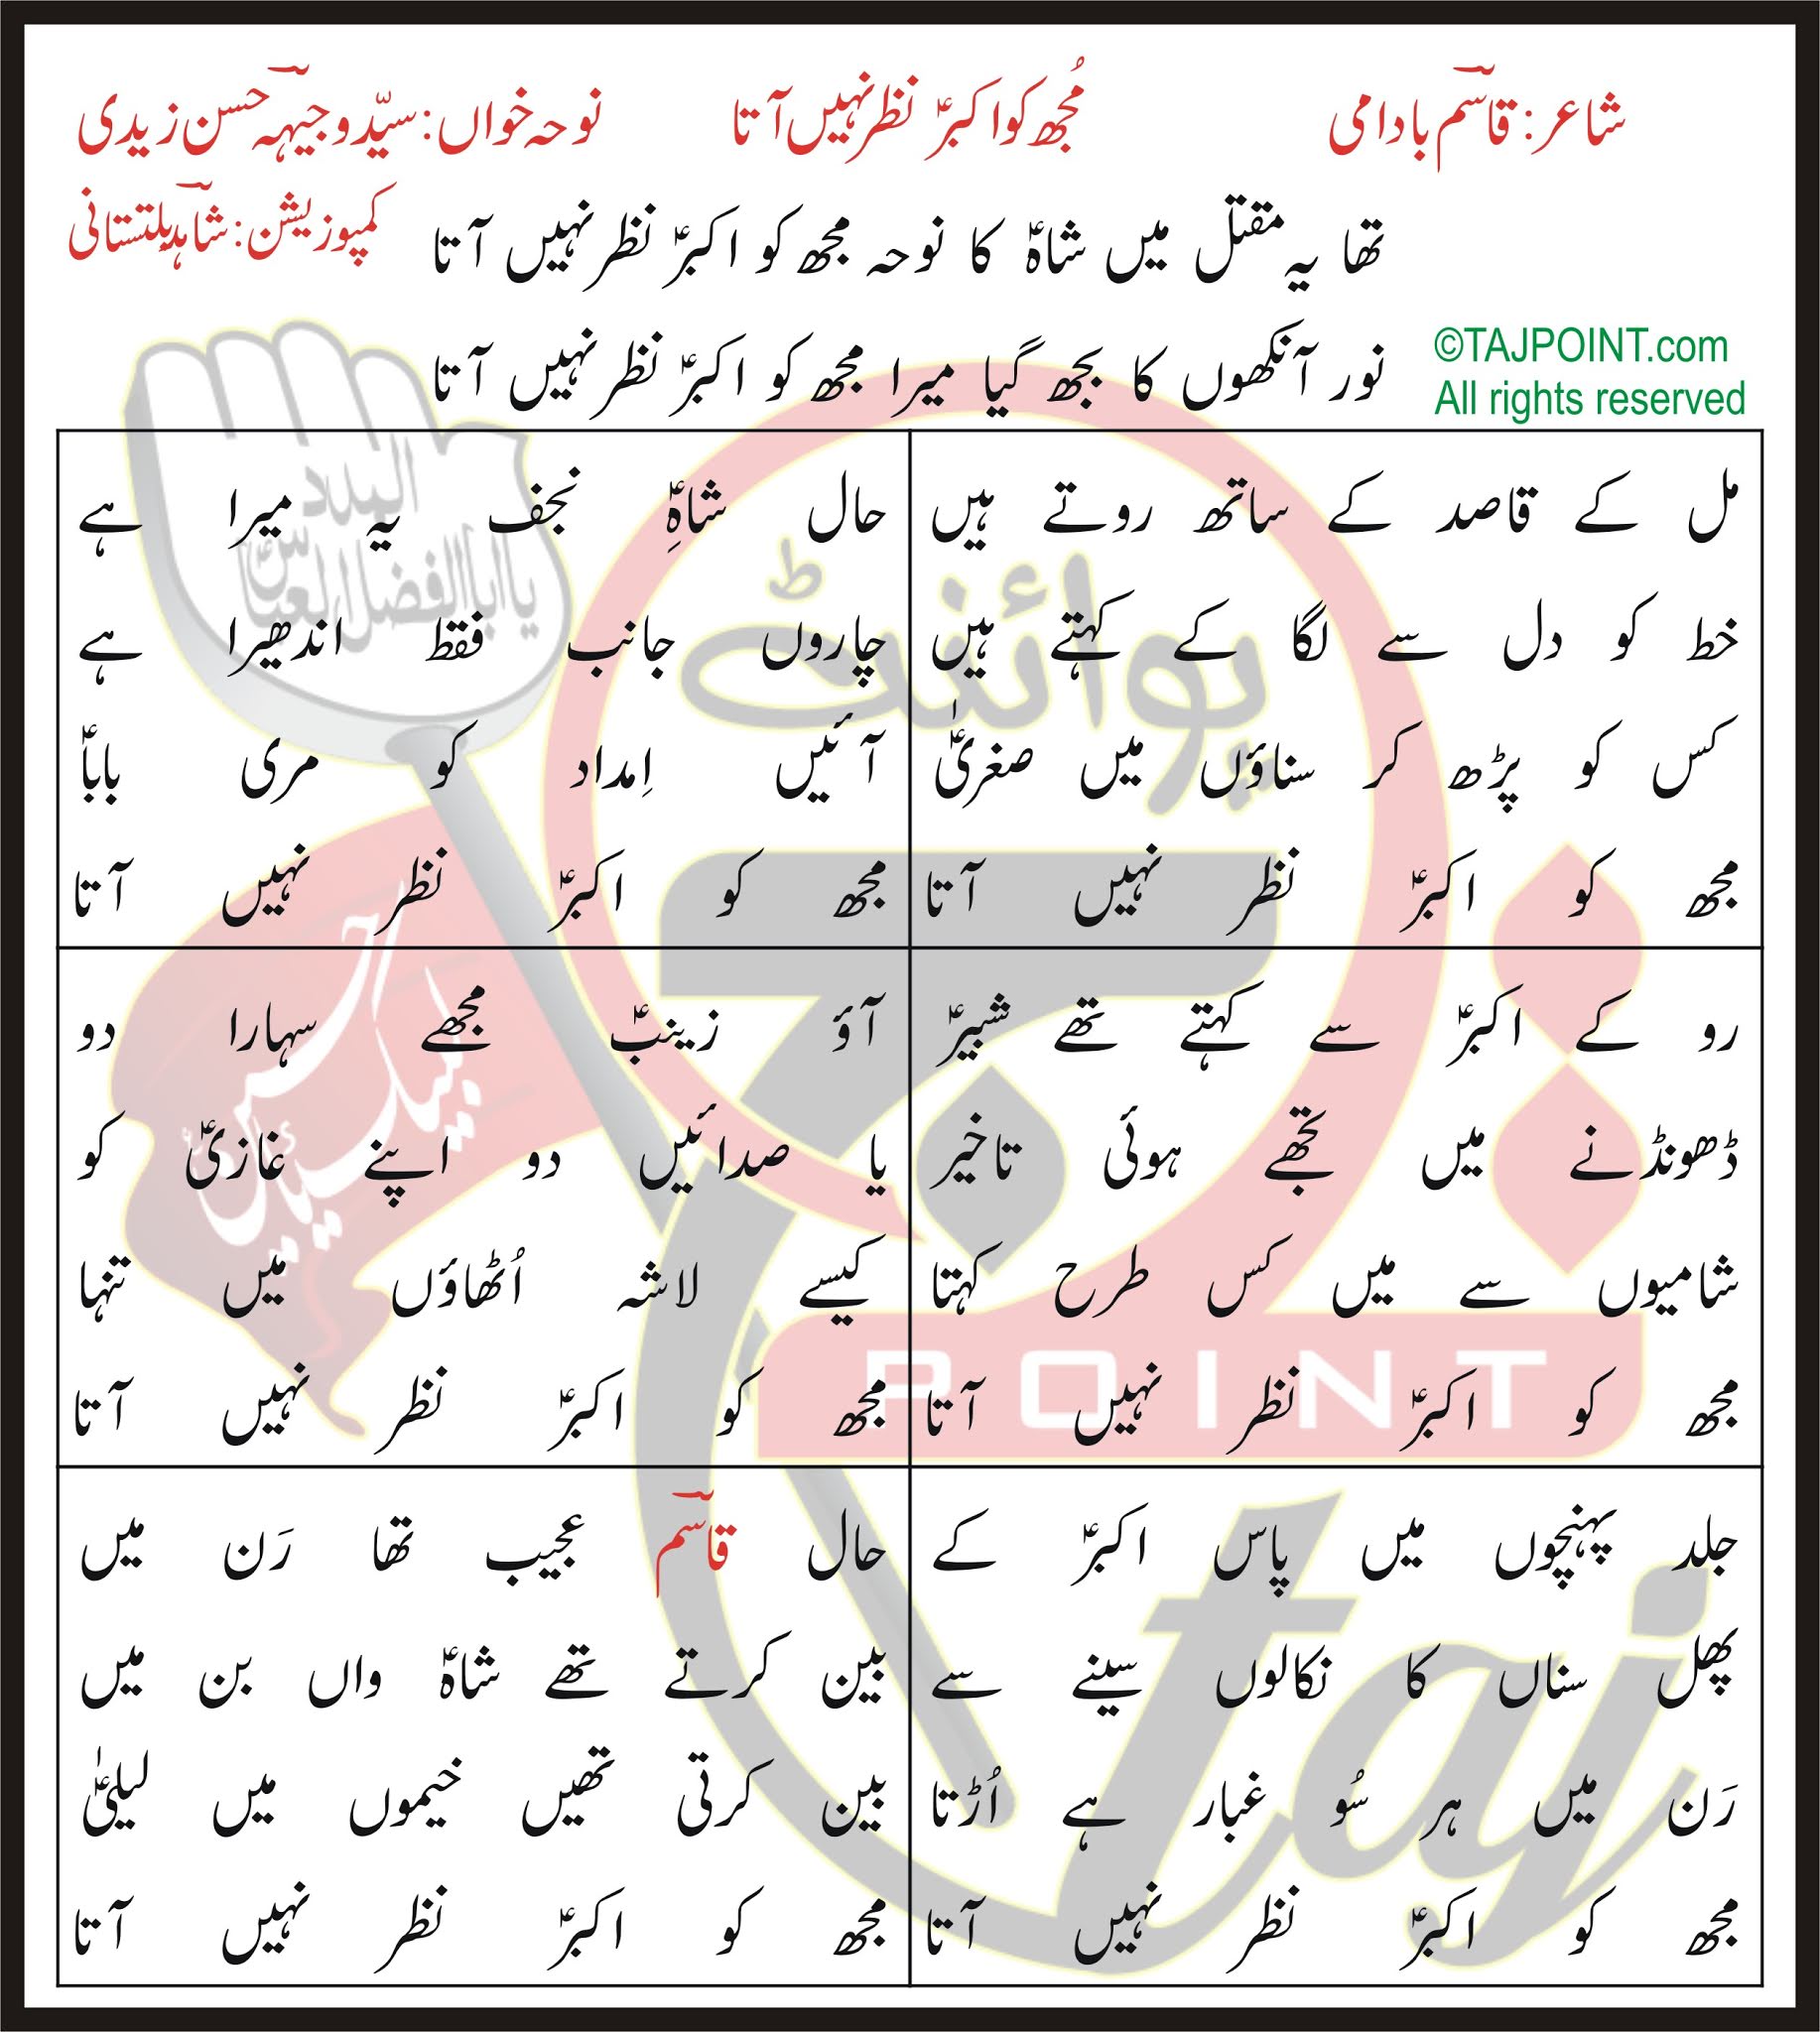 شاعر: قاسم بادامی
مُجھ کو اکبرؑ نظر نہیں آتا
نوحہ خواں: سیّد وجیہہ حسن زیدی
کمپوزیشن: شاہد بلتستانی
تھا یہ مقتل میں شاہؑ کا نوحہ مجھ کو اکبرؑ نظر نہیں آتا
نور آنکھوں کا بجھ گیا میرا مجھ کو اکبرؑ نظر نہیں آتا
©TAJPOINT.com
All rights reserved
مل کے قاصد کے ساتھ روتے ہیں
خط کو دل سے لگا کے کہتے ہیں
کس کو پڑھ کر سناؤں میں صغریٰؑ
مجھ کو اکبرؑ نظر نہیں آتا
حال شاہِؑ نجف یہ میرا ہے
چاروں جانب فقط اندھیرا ہے
آئیں اِمداد کو مری باباؑ
مجھ کو اکبرؑ نظر نہیں آتا
رو کے اکبرؑ سے کہتے تھے شبیرؑ
ڈھونڈنے میں تجھے ہوئی تاخیر
شامیوں سے میں کس طرح کہتا
مجھ کو اکبرؑ نظر نہیں آتا
آؤ زینبؑ مجھے سہارا دو
یا صدائیں دو اپنے غازیؑ کو
کیسے لاشہ اُٹھاؤں میں تنہا
مجھ کو اکبرؑ نظر نہیں آتا
جلد پہنچوں میں پاس اکبرؑ کے
پھل سناں کا نکالوں سینے سے
رَن میں ہر سُو غبار ہے اُڑتا
مجھ کو اکبرؑ نظر نہیں آتا
حال قاسم عجیب تھا رَن میں
بین کرتے تھے شاہؑ واں بن میں
بین کرتی تھیں خیموں میں لیلیٰؑ
مجھ کو اکبرؑ نظر نہیں آتا
پوائنٹ
تاج
POINT
taj
یا ابا الفضل العباسؑ
لبیک یا حسینؑ